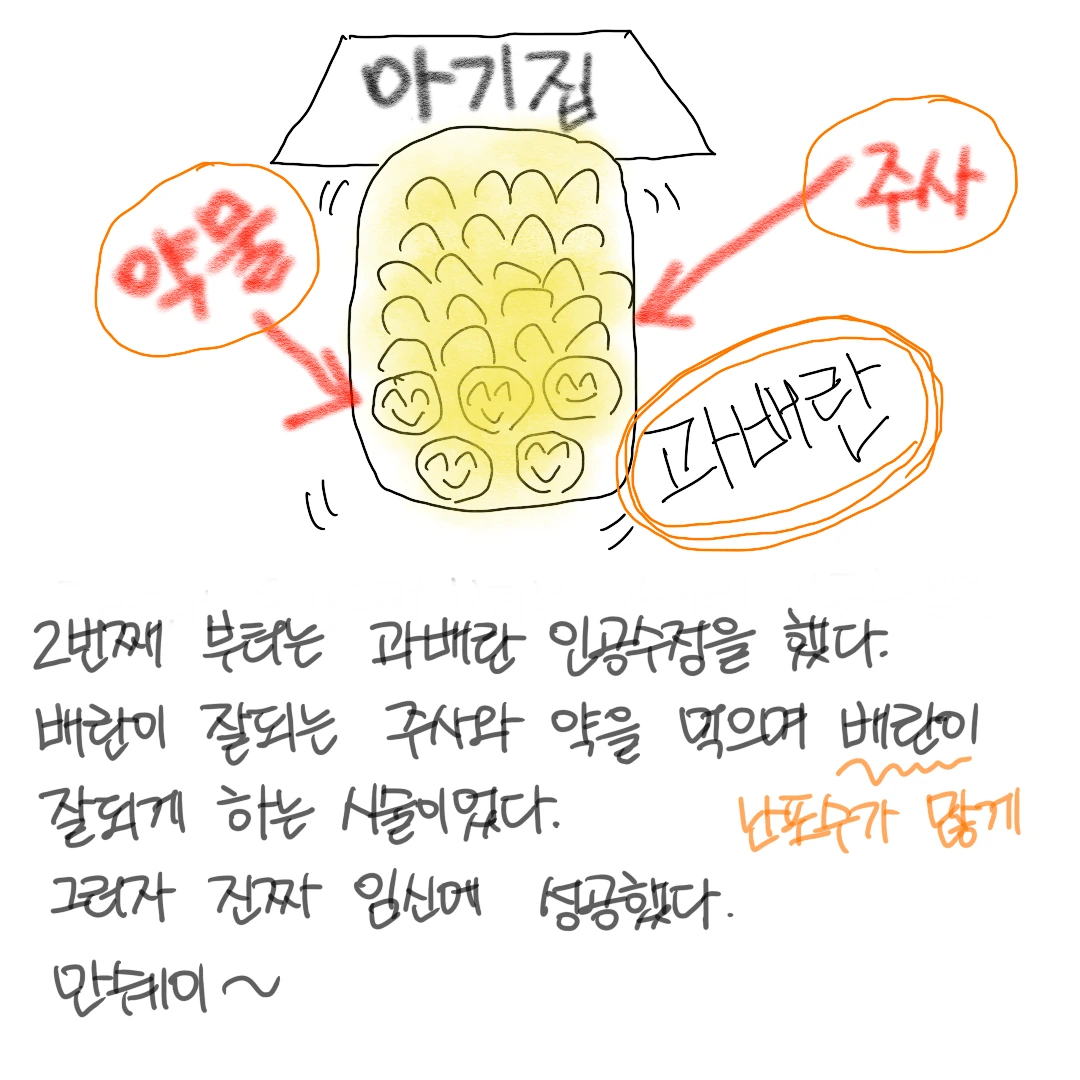 아기집
약물
주사
과배란
2번째 부터는 과배란 인공수정을 했다.
배란이 잘되는 주사와 약을 먹으며 배란이
잘되게 하는 시술이었다.
난포수가 많게
그러자 진짜 임신에 성공했다.
만쉐이~